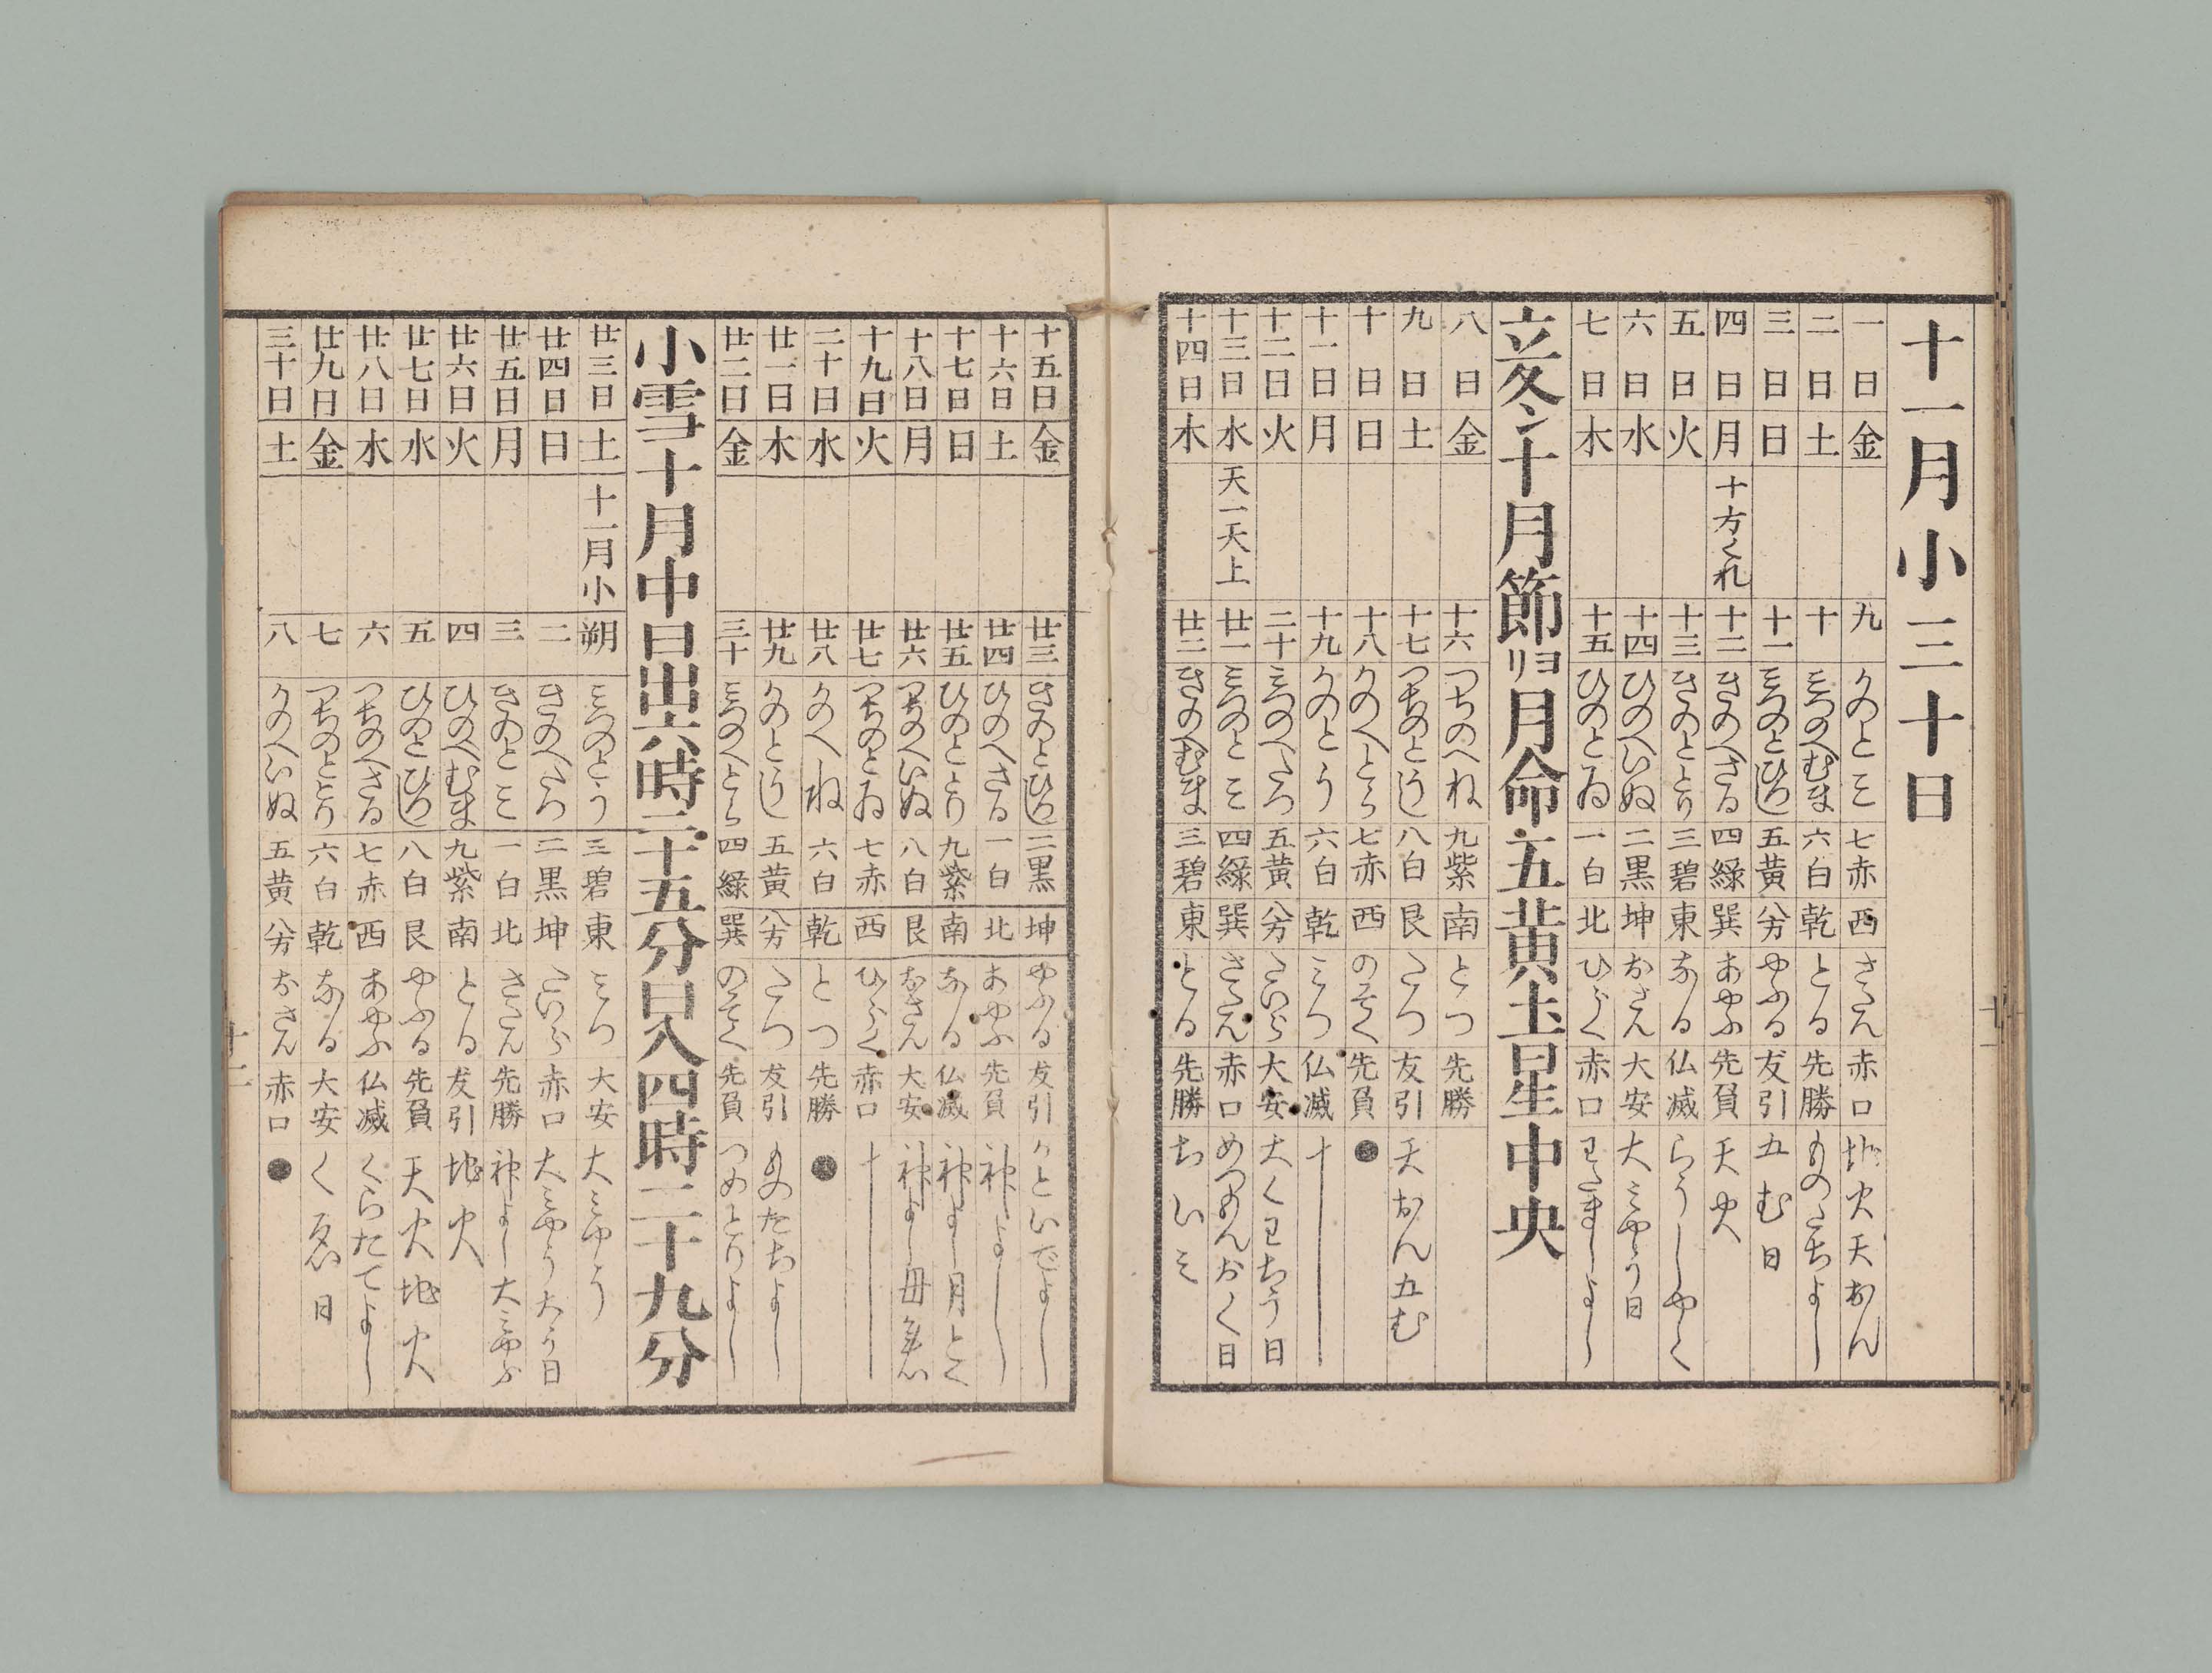 十一月小三十日
一日 金 九 かのとミ 七赤 西 さだん 赤口 地火天おん
二日 土 十 ミつのへむま 六白 乾 とる 先勝 ものたちよし
三日 日 十一 ミつのとひつし 五黄 八方 やふる 友引 五む日
四日 月 十方くれ 十二 きのへさる 四緑 巽 あやふ 先負 天火
五日 火 十三 きのととり 三碧 東 なる 仏滅 らうしやく
六日 水 十四 ひのへいぬ 二黒 坤 おさん 大安 大ミやう日
七日 木 十五 ひのとゐ 一白 北 ひらく 赤口 〓たましよし
立冬 亥ン 十月節ヨリ月命五黄土星中央
八日 金 十六 つちのへね 九紫 南 とつ 先勝
九日 土 十七 つちのとうし 八白 艮 たつ 友引 天おん五む
十日 日 十八 かのへとら 七赤 西 のそく 先負 ●
十一日 月 十九 かのとう 六白 乾 ミつ 仏滅 十し
十二日 火 二十 ミつのへたつ 五黄 八方 たいら 大安 大くゑちう日
十三日 水 天一天上 廿一 ミつのとミ 四緑 巽 さだん 赤口 めつもんおく日
十四日 木 廿二 きのへむま 三碧 東 とる 先勝 ちいミ
十五日 金 廿三 きのとひつし 二黒 坤 やふる 友引 かといでよし
十六日 土 廿四 ひのへさる 一白 北 あやふ 先負 神よし
十七日 日 廿五 ひのととり 九紫 南 なる 仏滅 神よし月とく
十八日 月 廿六 つちのへいぬ 八白 艮 おさん 大安 神よし母倉
十九日 火 廿七 つちのとゐ 七赤 西 ひらく 赤口 十し
二十日 水 廿八 かのへね 六白 乾 とつ 先勝 ●
廿一日 木 廿九 かのとうし 五黄 八方 たつ 友引 ものたちよし
廿二日 金 三十 ミつのへとら 四緑 巽 のそく 先負 つめとりよし
小雪十月中日出六時二十五分日入四時二十九分
廿三日 土 十一月小 朔 ミつのとう 三碧 東 ミつ 大安 大ミやう
廿四日 日 二 きのへたつ 二黒 坤 たいら 赤口 大ミやう大う日
廿五日 月 三 きのとミ 一白 北 さだん 先勝 神よし大ミやう
廿六日 火 四 ひのへむま 九紫 南 とる 友引 地火
廿七日 水 五 ひのとひつし 八白 艮 やふる 先負 天火地火
廿八日 木 六 つちのへさる 七赤 西 あやふ 仏滅 くらたてよし
廿九日 金 七 つちのととり 六白 乾 なる 大安 くゑ日
三十日 土 八 かのへいぬ 五黄 八方 おさん 赤口 ●
十二